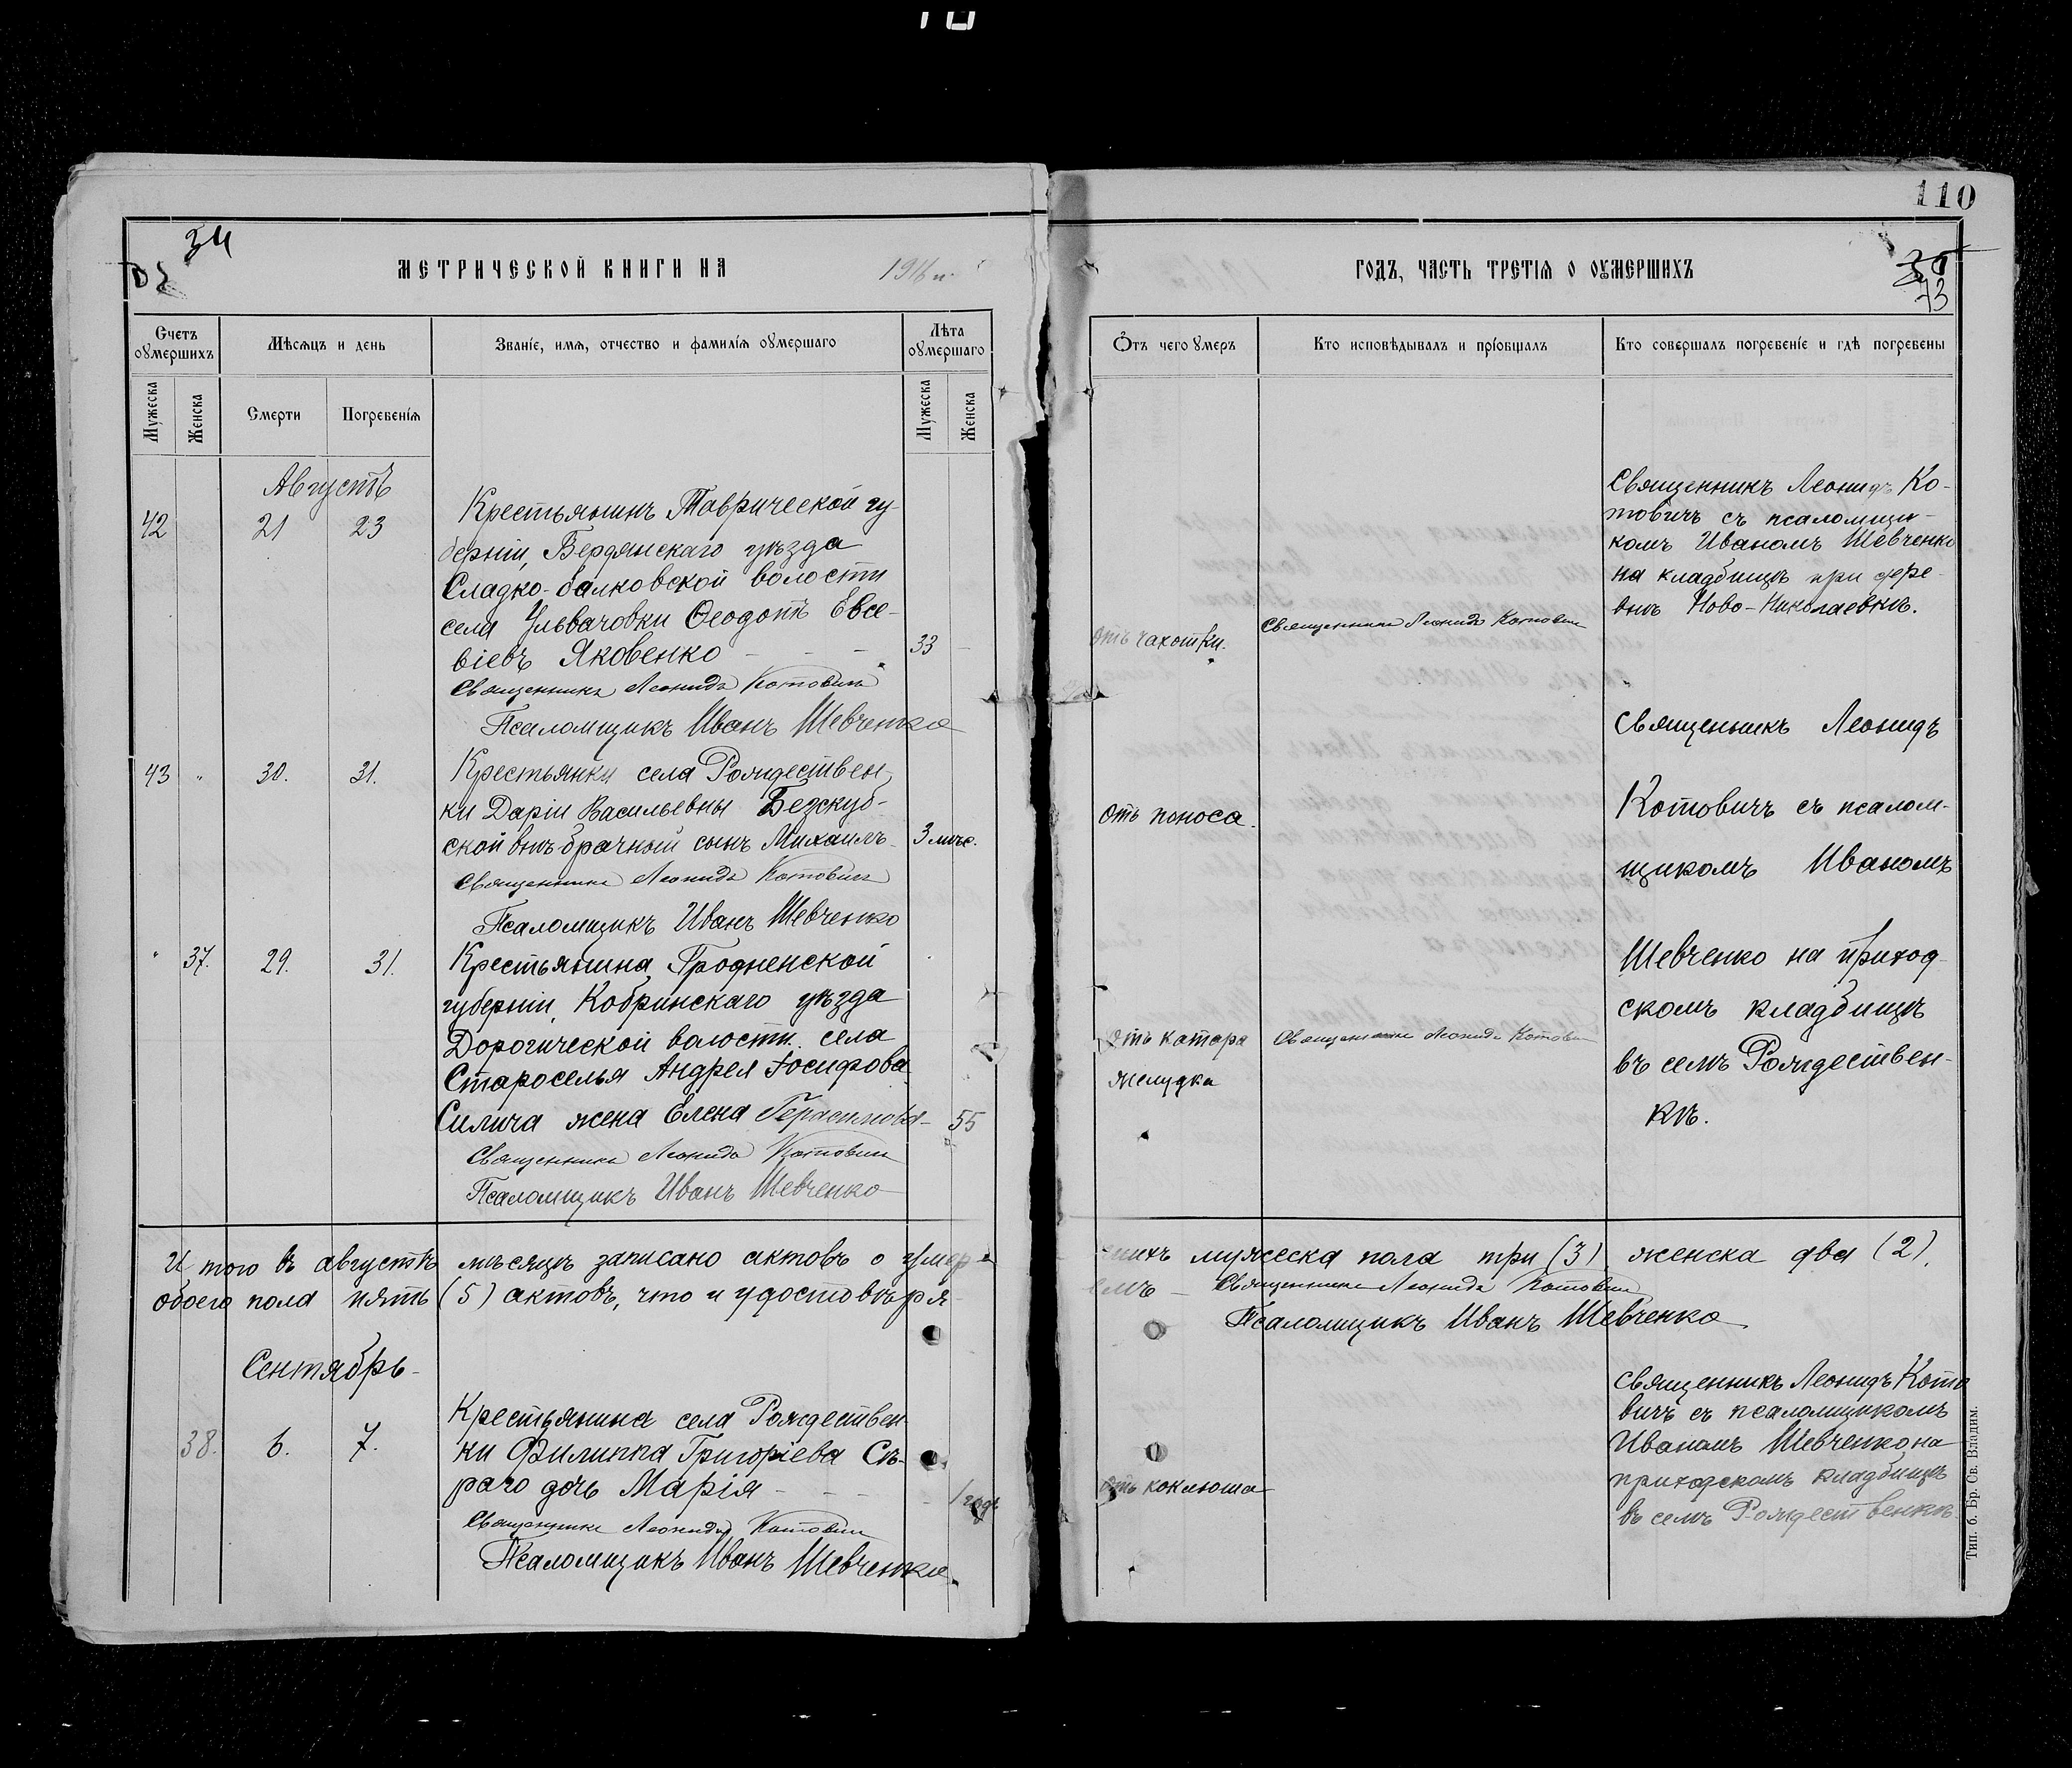 110
34
МЕТРИЧЕСКОЙ КНИГИ НА 1916 г.
ГОДЪ, ЧАСТЬ ТРЕТІЯ О ОУМЕРШИХЪ
73
Счетъ оумершихъ
Мѣсяцъ и день
Званіе, имя, отчество и фамилія оумершаго
Лѣта оумершаго
Мужеска
Женска
Смерти
Погребенія
Мужеска
Женска
Отъ чего умеръ
Кто исповѣдывалъ и пріобщалъ
Кто совершалъ погребеніе и гдѣ погребены
Августъ
42 21 23
Крестьянинъ Таврической гу-
берніи, Бердянскаго уѣзда
Сладко-балковской волости
села Ульвачовки Ѳеодотъ Евсе-
віевъ Яковенко - - - 33 -
Священникъ Леонидъ Котовичъ
Псаломщикъ Иванъ Шевченко
отъ чахотки.
Священникъ Леонидъ Котович
Священникъ Леонидъ Ко-
товичъ съ псаломщи-
комъ Иваномъ Шевченко
на кладбищѣ при дере-
внѣ Ново-Николаевкѣ.
43 " 30. 31.
Крестьянки села Рождествен-
ки Даріи Васильевны Безскуб-
ской внѣбрачный сынъ Михаилъ 3 мѣс.
Священникъ Леонидъ Котовичъ
Псаломщикъ Иванъ Шевченко
отъ поноса.
Священникъ Леонидъ
Котовичъ съ псалом-
щикомъ Иваномъ
Шевченко на приход-
скомъ кладбищѣ
въ селѣ Рождествен-
кѣ.
" 37. 29. 31.
Крестьянина Гродненской
губерніи, Кобринскаго уѣзда
Дорогической волости села
Староселья Андрея Іосифова
Силича жена Елена Герасимова - 55
Священникъ Леонидъ Котовичъ
Псаломщикъ Иванъ Шевченко
отъ катара
желудка
Священникъ Леонидъ Котович
И того въ августѣ мѣсяцѣ записано актовъ о умер-
шихъ мужеска пола три (3), женска два (2),
обоего пола пять (5) актовъ, что и удостовѣря-
емъ - Священникъ Леонидъ Котовичъ
Псаломщикъ Иванъ Шевченко
Сентябрь
38. 6. 7.
Крестьянина села Рождествен-
ки Филиппа Григоріева Сѣ-
раго дочь Марія - - - - 1 годъ
Священникъ Леонидъ Котовичъ
Псаломщикъ Иванъ Шевченко.
отъ коклюша
Священникъ Леонидъ Кото
вичъ съ псаломщикомъ
Иваномъ Шевченко на
приходскомъ кладбищѣ
въ селѣ Рождественкѣ
Тип. б. Бр. Св. Владим.